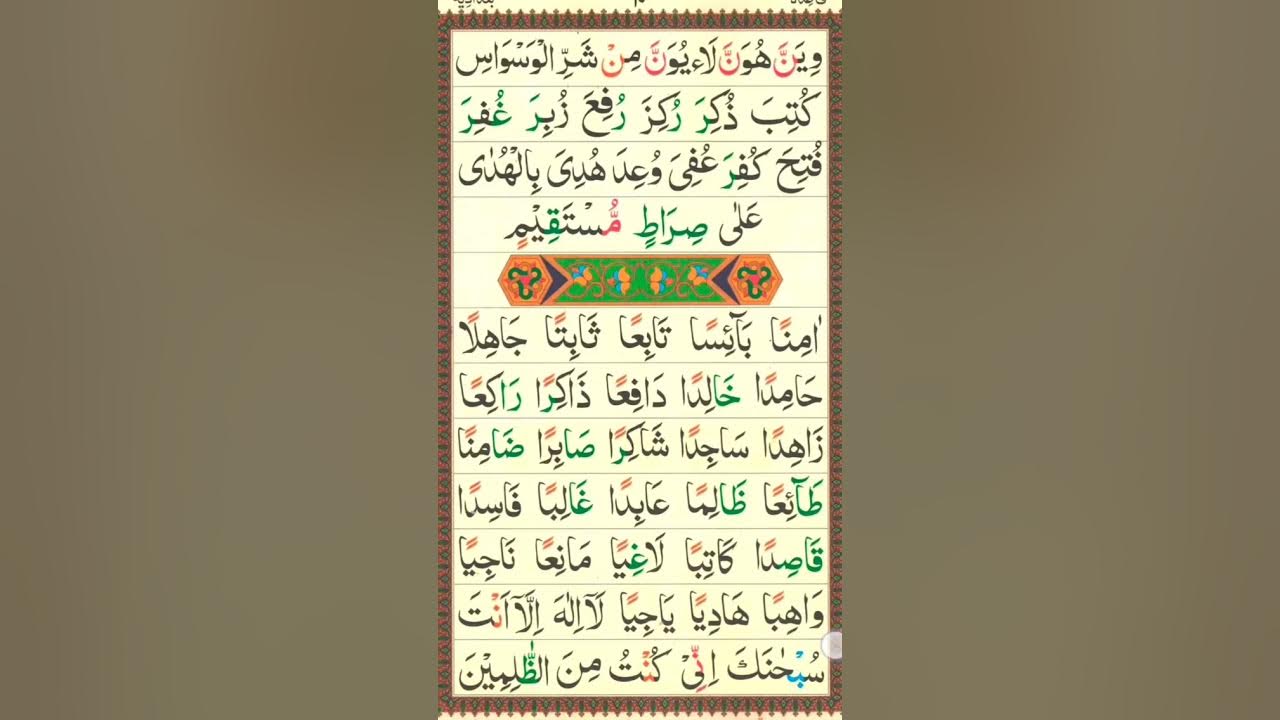 وِيَنَّ هُوَنَّ لَاءِيُوَنَّ مِنْ شَرِّ الْوَسْوَاسِ
كُتِبَ ذُكِرَ رُكِزَ رُفِعَ زُبِرَ غُفِرَ
فُتِحَ كُفِرَ عُفِیَ وُعِدَ هُدِیَ بِالْهُدٰی
عَلٰی صِرَاطٍ مُّسْتَقِيْمٍ
اٰمِنًا بَآئِسًا تَابِعًا ثَابِتًا جَاهِلًا
حَامِدًا خَالِدًا دَافِعًا ذَاكِرًا رَاكِعًا
زَاهِدًا سَاجِدًا شَاكِرًا صَابِرًا ضَامِنًا
طَآئِعًا ظَالِمًا عَابِدًا غَالِبًا فَاسِدًا
قَاصِدًا كَاتِبًا لَاغِيًا مَانِعًا نَاجِيًا
وَاهِبًا هَادِيًا يَاجِيًا لَآ اِلٰهَ اِلَّآ اَنْتَ
سُبْحٰنَكَ اِنِّیْ كُنْتُ مِنَ الظّٰلِمِيْنَ